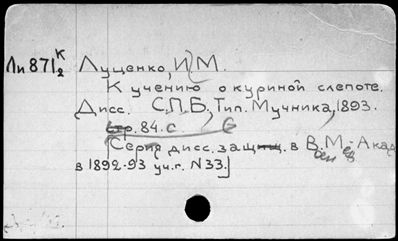 Ли 871 К/2 Луценко, И. М.
К учению о куриной слепоте.
Дисс. С.П.Б., Тип. Мучника, 1893.
стр. 84. с.
(Серия дисс. защищ. в В. Мед. Акад
в 1892-93 уч. г. N 33.)